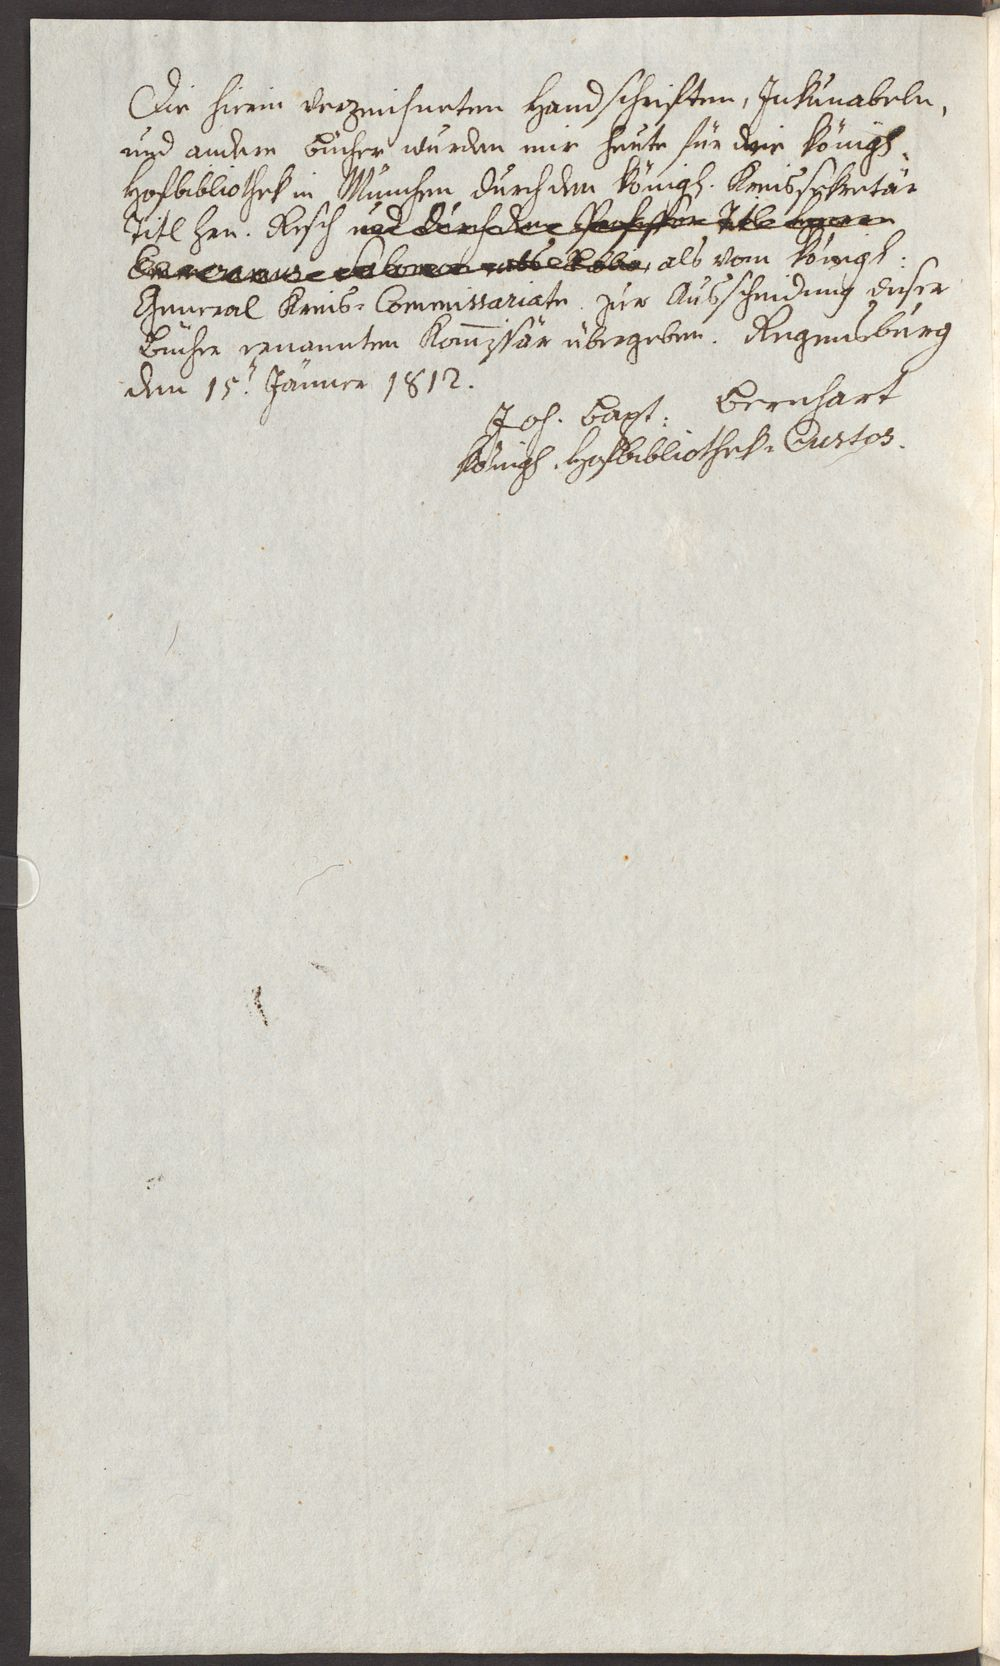 Die hierin verzeichneten Handschriften, Inkunabeln,
und andere Bücher wurden mir heute für die königl.
Hofbibliothek in München durch den königl. Kreissekretär
Titl Hrn. Resch und durch den Professor Titl Herrn
als vom königl:
General Kreis-Commissariate zur Ausscheidung dieser
Bücher ernannten Kom̅issär übergeben. Regensburg
den 15t. Jänner 1812.
Joh. Bapt: Bernhart
königl. Hofbibliothek-Custos.